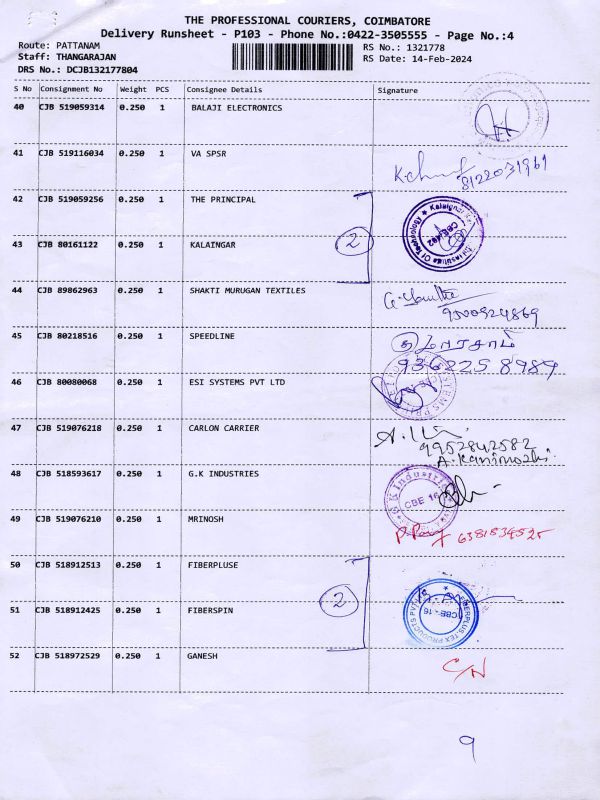 THE PROFESSIONAL COURIERS, COIMBATORE
Delivery Runsheet - P103 - Phone No.:0422-3505555 - Page No.:4
Route: PATTANAM RS No.: 1321778
Staff: THANGARAJAN RS Date: 14-Feb-2024
DRS No.: DCJB132177804
S No Consignment No Weight PCS Consignee Details Signature
40 CJB 519059314 0.250 1 BALAJI ELECTRONICS
41 CJB 519116034 0.250 1 VA SPSR
8122031961
42 CJB 519059256 0.250 1 THE PRINCIPAL
2
43 CJB 80161122 0.250 1 KALAINGAR
44 CJB 89862963 0.250 1 SHAKTI MURUGAN TEXTILES
9500924869
45 CJB 80218516 0.250 1 SPEEDLINE
9362258989
46 CJB 80080068 0.250 1 ESI SYSTEMS PVT LTD
47 CJB 519076218 0.250 1 CARLON CARRIER
9952842582
A.Kanimozhi
48 CJB 518593617 0.250 1 G.K INDUSTRIES
G K Industries
CBE 16
49 CJB 519076210 0.250 1 MRINOSH
6381834525
50 CJB 518912513 0.250 1 FIBERPLUSE
2
51 CJB 518912425 0.250 1 FIBERSPIN
FIBERPLUS TEX PRODUCTS PVT
CBE - 16
52 CJB 518972529 0.250 1 GANESH
C/N
9